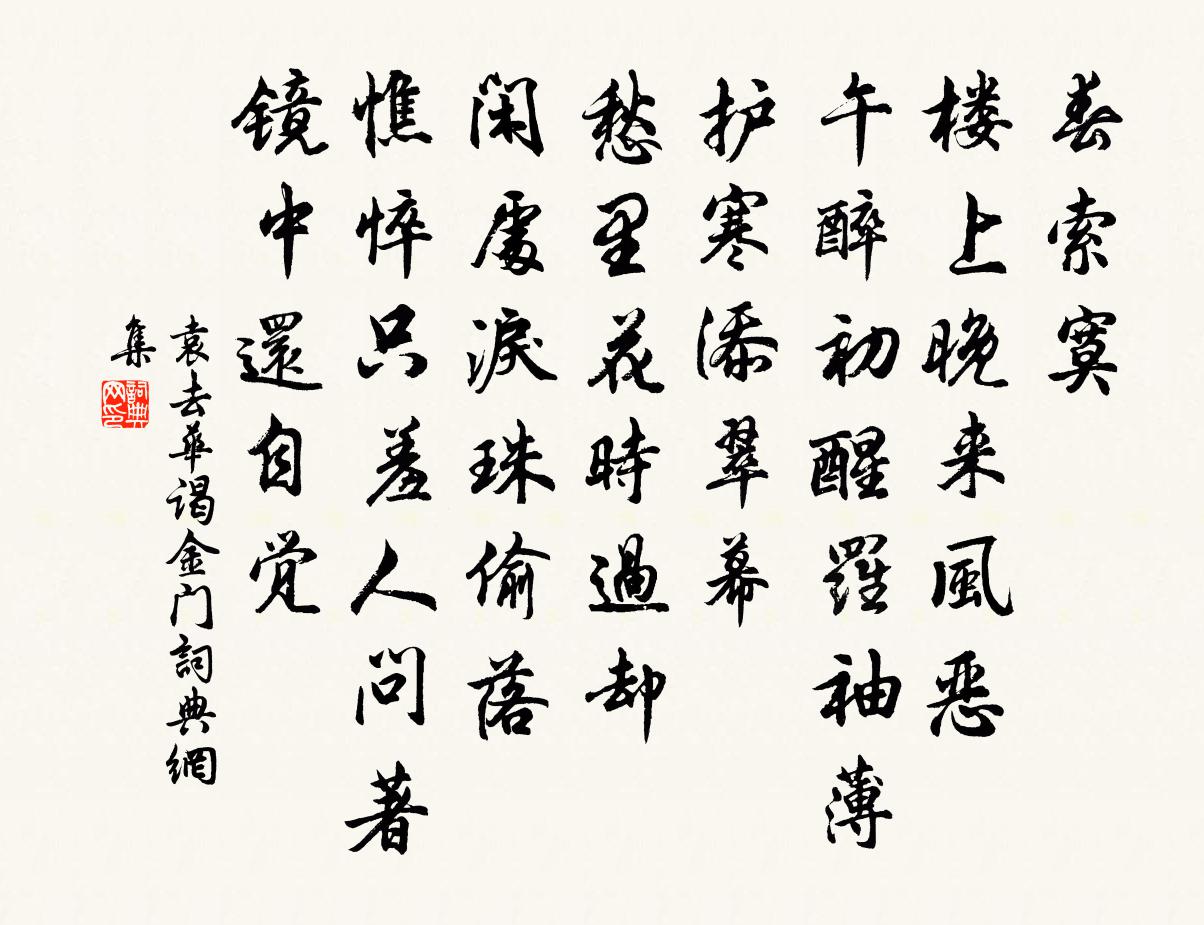 春索寞
楼上晚来風恶
午醉初醒羅袖薄
护寒添翠幕
愁里花時過却
闲處淚珠偷落
憔悴只羞人問著
镜中還自觉
袁去华谒金门詞典網
集
詞典网印